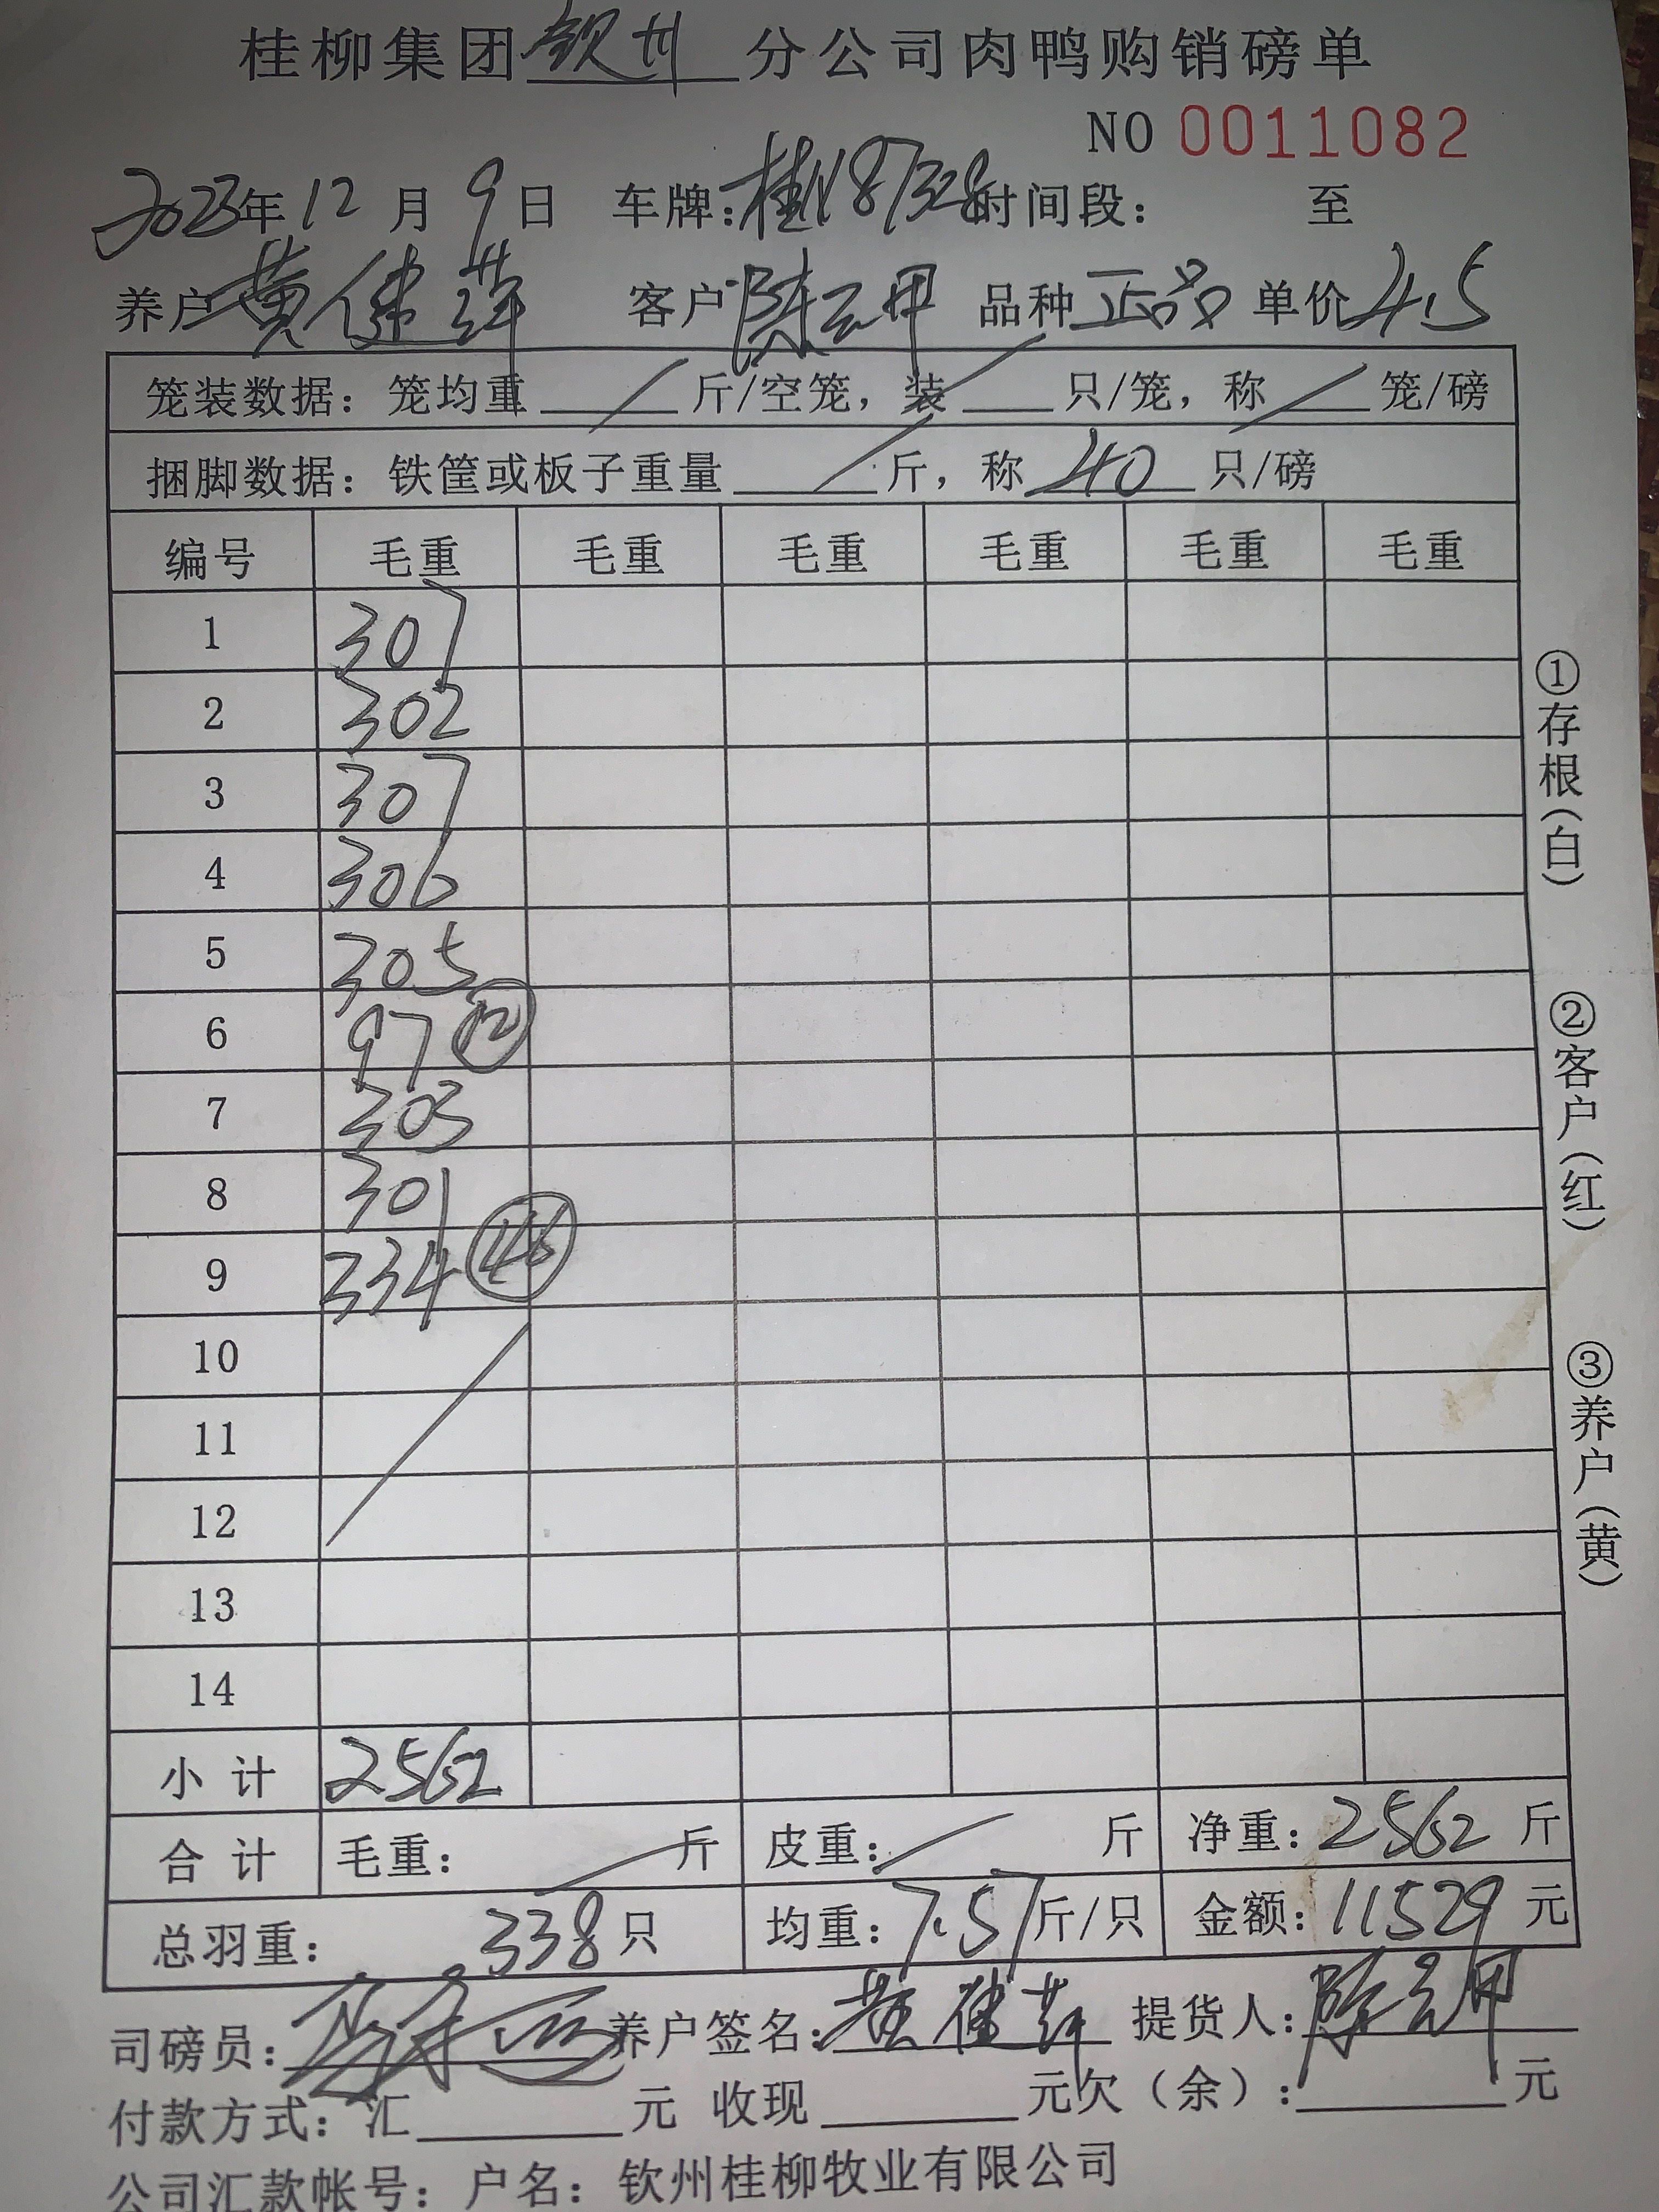 桂柳集团 钦州 分公司肉鸭购销磅单
NO 0011082
2023年12月9日 车牌: 时间段: 至
养户 黄健萍 客户 陈云甲 品种 正品 单价 4.5
笼装数据: 笼均重 / 斤/空笼, 装 / 只/笼, 称 / 笼/磅
捆脚数据: 铁筐或板子重量 / 斤, 称 40 只/磅
编号 毛重 毛重 毛重 毛重 毛重 毛重
1 307
2 302
3 307
4 306
5 305
6 97 (12)
7 303
8 301
9 334 (46)
10
11
12
13
14
小计 2562
合计 毛重: / 斤 皮重: / 斤 净重: 2562 斤
总羽重: 338只 均重: 7.57斤/只 金额: 11529元
司磅员: 养户签名: 黄健萍 提货人: 陈云甲
付款方式: 汇 元 收现 元欠(余): 元
公司汇款帐号: 户名: 钦州桂柳牧业有限公司
①存根(白)
②客户(红)
③养户(黄)